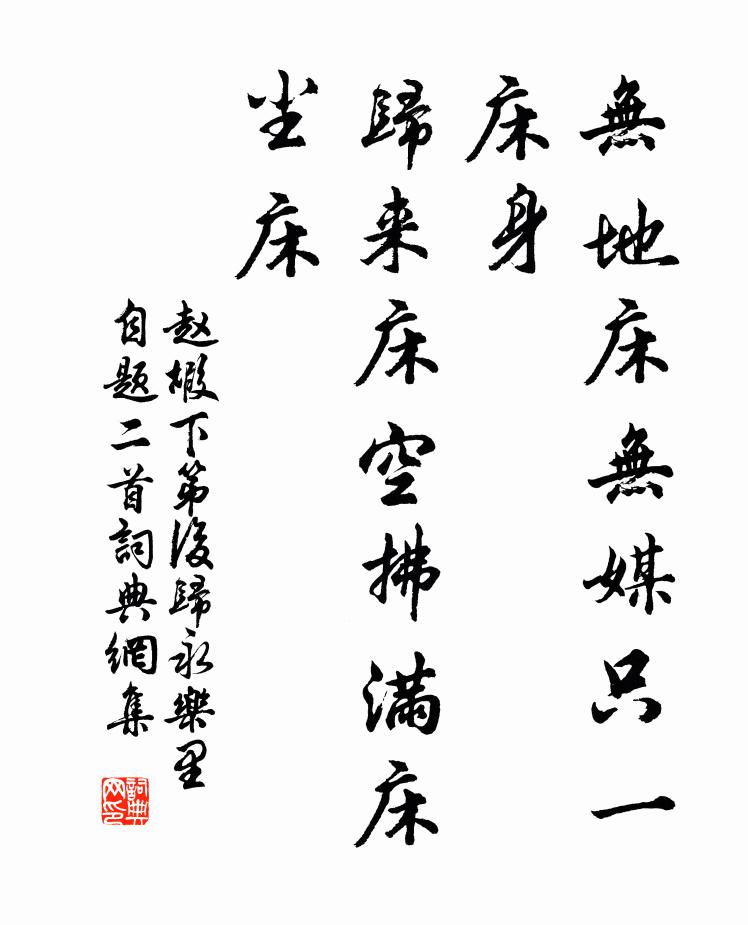 無地床無媒只一
床身
歸来床空拂滿床
尘床
赵嘏下第後歸永樂里
自題二首詞典網集
詞典
网印